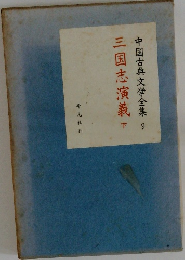 中国古典文学全集 9
三国志演義 下
平凡社刊